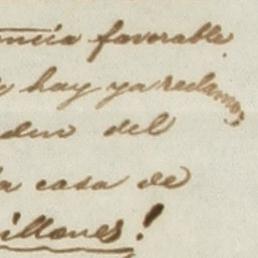 encia favorable.
hay ya reclamos
den del
la casa de
illones!